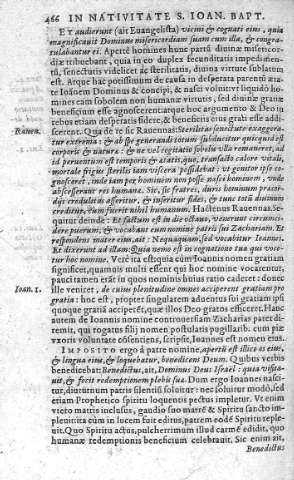 466 IN NATIVITATE S. IOAN. BAPT.
Et audierunt (ait Euangelista) vicini & cognati eius, quia
magnificauit Dominus misericordiam suam cum illa, & congra-
tulabantur ei. Apertè homines hunc partũ diuinæ misericor-
diæ tribuebant, quia in eo duplex fecunditatis impedimen-
tũ, senectutis videlicet ac sterilitatis, diuina virtute sublatum
est. Atque hac potissimum de causa in desperata parentũ æta-
te Ioãnem Dominus & concipi, & nasci voluit; vt liquidò ho-
mines eam sobolem non humanæ virtutis, sed diuinæ gratiæ
beneficium esse agnoscerent; atque hoc argumento & Deo in
rebus etiam desperatis fidere, & beneficiis eius grati esse addi-
Rauen. scerent. Qua de re sic Rauennas: Sterilitas senectute exagge-
ratur extrema: & ab spe generandi totum subducitur quicquid est
corporis & natura: & ne vel cogitatio sobolis vlla remaneret, ad
id peruentum est temporis & ætatis, quo, transacto calore vitali,
mortale frigus sterilis iam viscera possidebat: vt genitor ipse co-
gnosceret, inde iam per hominem non posse nasci hominem, vnde
abscesserant res humanæ. Sic, sic fratres, duris hominum præcor-
diis credulitas asseritur, & inseritur fides, & tunc totũ diuinum
creditur, cum fuerit nihil humanum. Hactenus Rauennas. Se-
quitur deinde: Et factum est in die octauo, venerunt circunci-
dere puerum, & vocabant eum nomine patris sui Zachariam. Et
respondens mater eius ait: Nequaquam, sed vocabitur Ioannes.
Et dixerunt ad illam: Quia nemo est in cognatione tua qui voce-
tur hoc nomine. Verè ita est: quia cum Ioannis nomen gratiam
significet, quamuis multi essent qui hoc nomine vocarentur,
pauci tamen erãt in quos nominis huius ratio caderet: donec
Ioan. 1. ille veniret, de cuius plenitudine omnes acciperent gratiam pro
gratia: hoc est, propter singularem aduentus sui gratiam ipsi
quoque gratiã acciperẽt, quæ illos Deo gratos efficeret. Hanc
autem de Ioannis nomine controuersiam Zachariæ pater diri-
mit, qui rogatus filij nomen postulatis pugillaribus. cum piæ
vxoris voluntate cõsentiens, scripsit, Ioannes est nomen eius.
IMPOSITO ergo à patre nomine, apertũ est illico os eius,
& lingua eius, & loquebatur, benedicens Deum. Quibus verbis
benedicebat? Benedictus, ait, Dominus Deus Israël: quia visita-
uit, & fecit redemptionem plebis suæ. Dum ergo Ioannes nasci-
tur, diuturnum patris silentiũ soluitur: nec soluitur modò, sed
etiam Prophetico Spiritu loquens pectus impletur. Vt enim
viero matris inclusus, gaudio suo matrẽ & Spiritu sancto im-
pleuit: ita cùm in lucem fuit editus, patrem eodẽ Spiritu reple-
uit. Quo Spiritu actus, pulcherrimum illud carmẽ edidit, quo
humanæ redemptionis beneficium celebrauit. Sic enim ait,
Benedictus